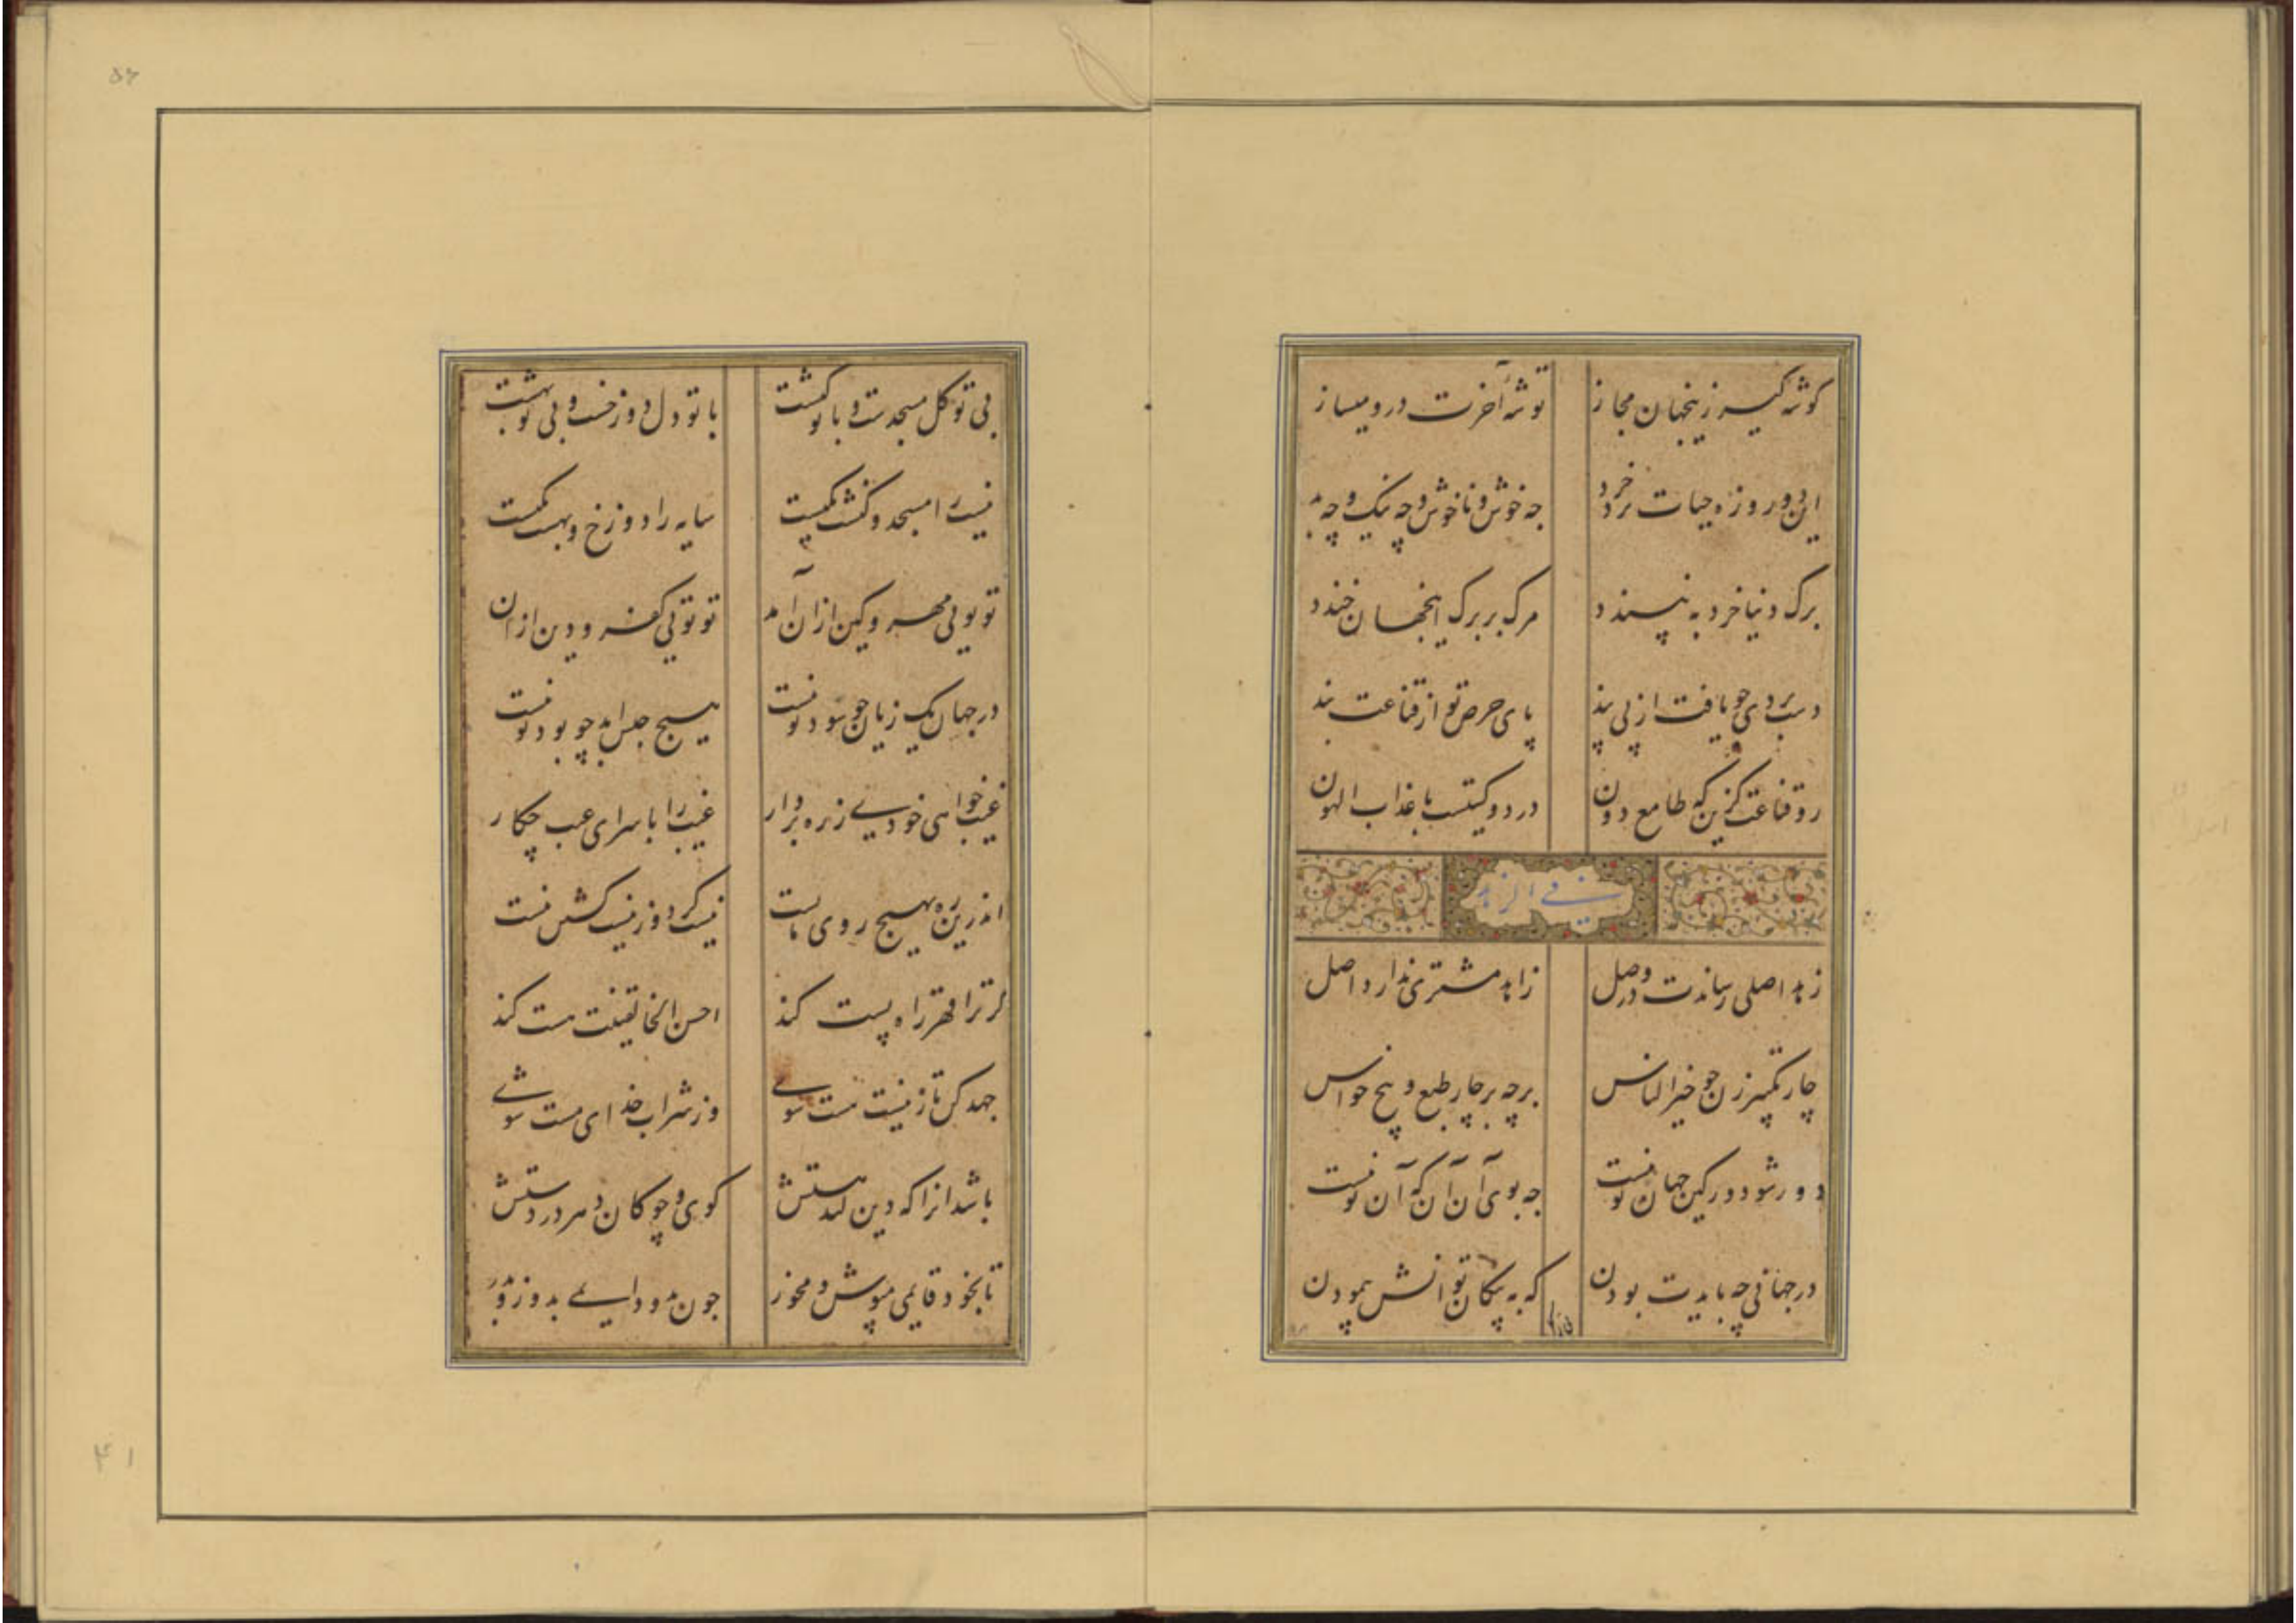 گوشه گیر زینجهان مجاز توشه آخرت درو میساز
این دو روزه حیات نزد خرد چه خوش و ناخوش و چه نیک و چه بد
برک دنیا خرد نپسندد مرک بر برک اینجهان خندد
دست بردی چو یافت از پی پند پای حرص تو از قناعت بند
رو قناعت گزین که طامع دون در دو گیتیست با عذاب الهون
فی الزهد
زهد اصلی رساندت در وصل زاهد مشتری ندارد اصل
چار تکبیر زن چو خیر الناس بر چه بر چار طبع و پنج حواس
دور شو دور کین جهان تو نیست چه بوی آن آن که آن تو نیست
در جهانی چه بایدت بودن که به پنکان توانش پیمودن
بی تو کل مسجدست و با تو کنشت با تو دل دوزخست و بی تو بهشت
نیست را مسجد و کنشت یکیست سایه را دوزخ و بهشت یکیست
تو تویی مهر و کین از آن آمد تو تویی کفر و دین از آن
در جهان یک زیان چو سود تو نیست هیچ جلباب بد چو بود تو نیست
غیب خواهی خودی ز ره بردار غیب را با سرای عیب چکار
اندرین ره هیچ روی هست نیست گرد و ز نیست کش نیست
گر ترا قهر راه پست کند احسن الخالقینت هست کند
جهد کن تا ز نیست هست شوی وز شراب خدای مست شوی
باشد انرا که دین کند هستش گوی و چوکان دهر در دستش
تا بخود قایمی مپوش و مخور چون بدو دایمی بدوز و بدر
۴۱